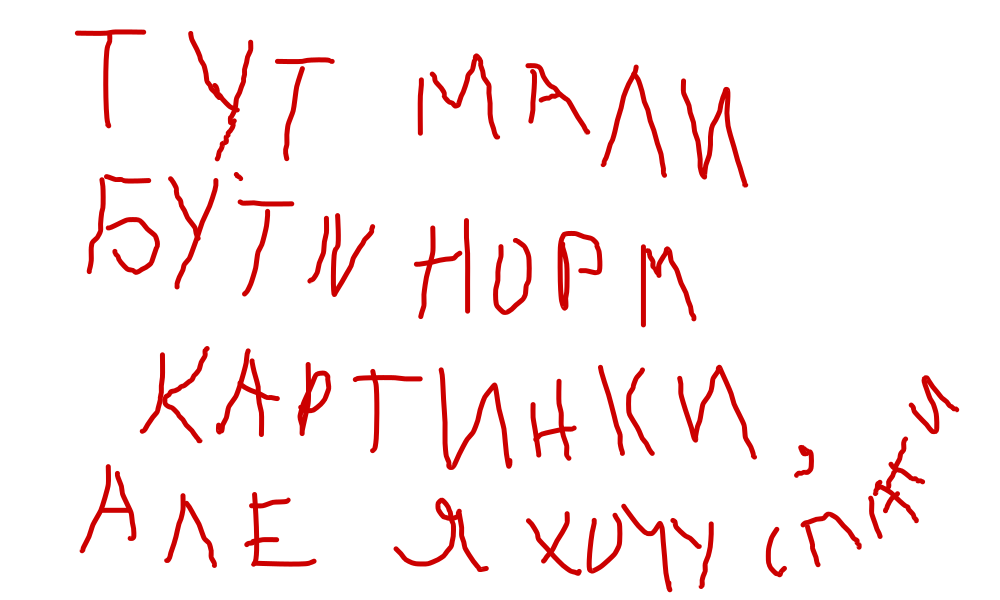 ТУТ МАЛИ
БУТИ НОРМ
КАРТИНКИ,
АЛЕ Я ХОЧУ СПАТИ